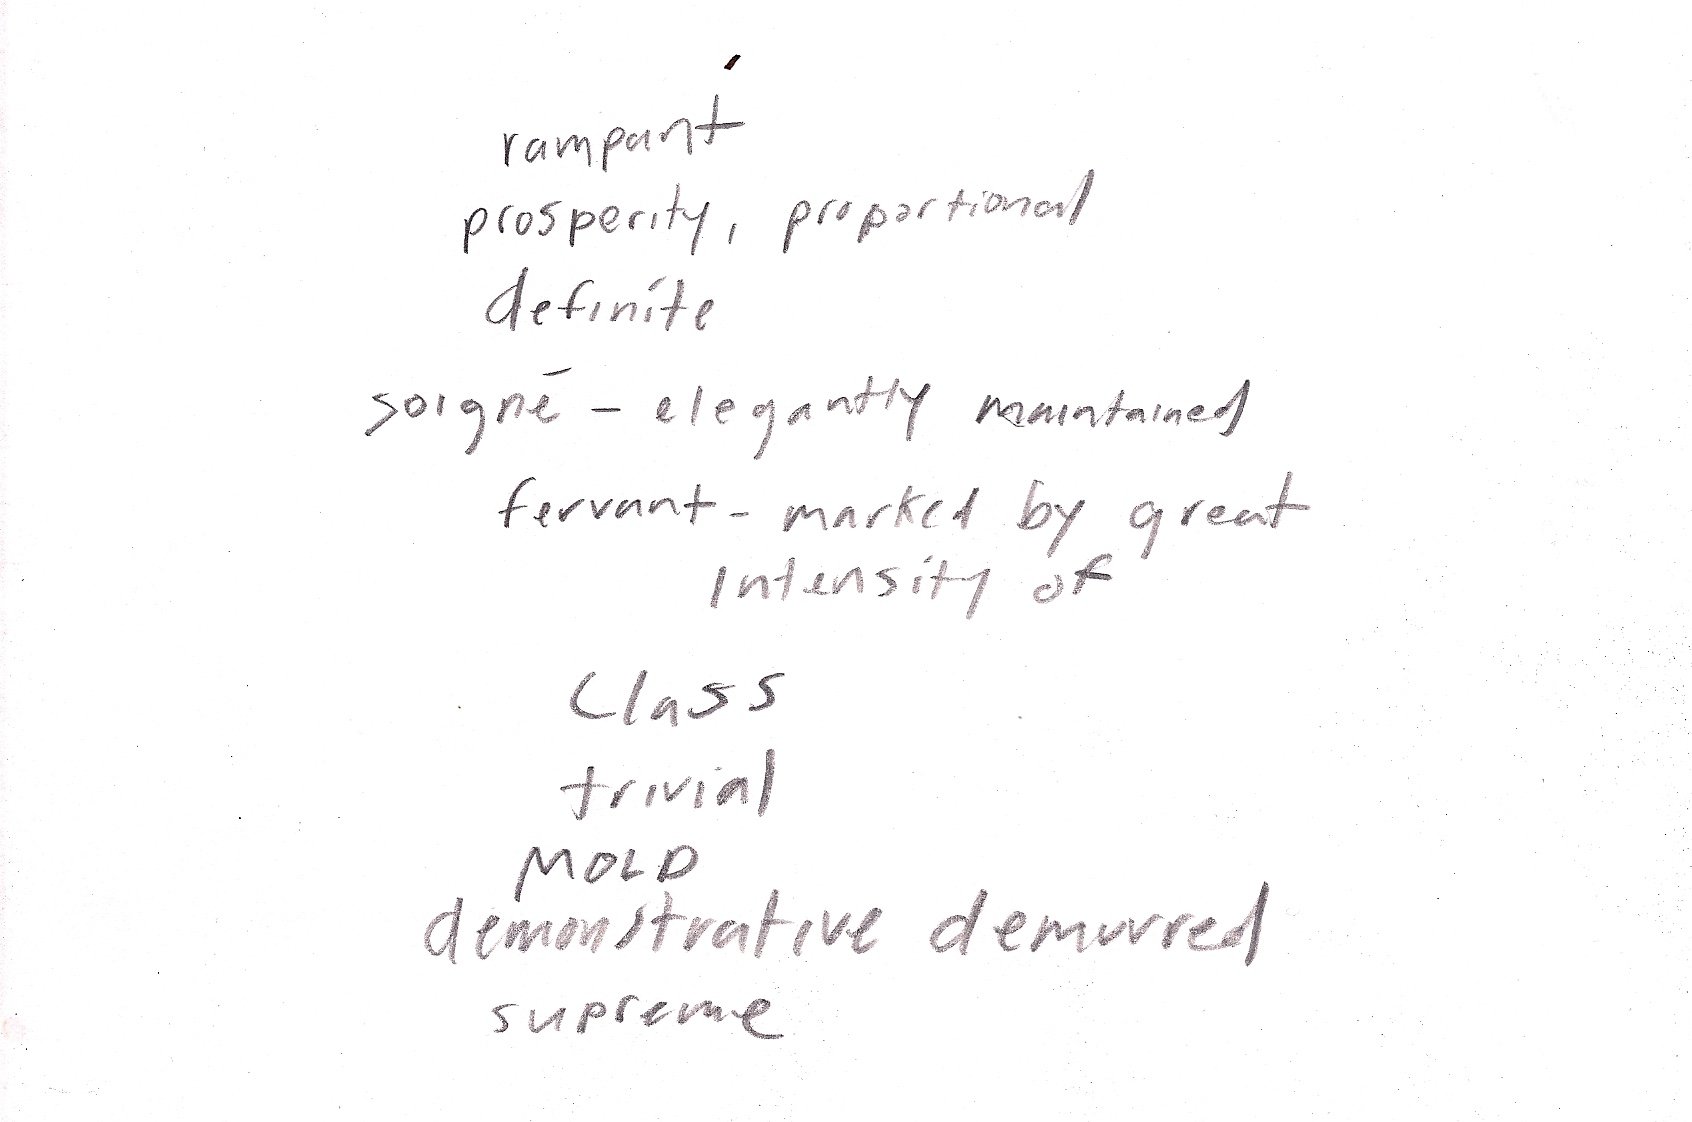 rampant
prosperity, proportional
definite
soigné - elegantly maintained
fervant - marked by great
intensity of
Class
trivial
MOLD
demonstrative demurred
supreme